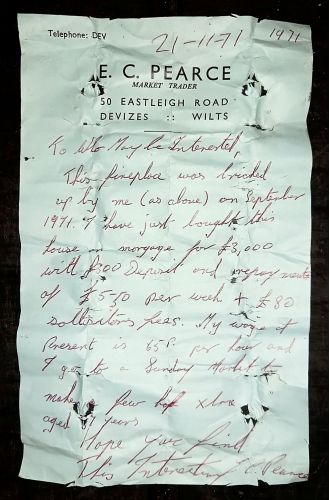 Telephone: DEV
21-11-71 1971
E. C. PEARCE
MARKET TRADER
50 EASTLEIGH ROAD
DEVIZES :: WILTS
To Who May be Interested,
This fireplace was bricked
up by me (as above) on September
1971. I have just bought this
house on morgage for £3,000
with £300 Deposit and repayments
of £5-50 per week + £80
sollisitors fees. My wage at
Present is 65P. per hour and
I go to a Sunday Market to
make a few xtra
aged years
Hope you find
This Interesting C. Pearce